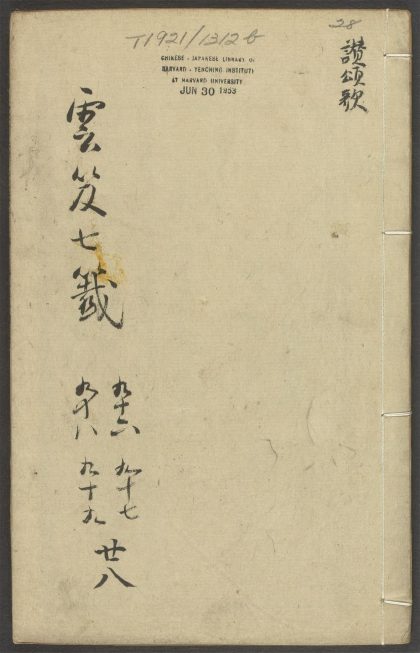 28
T1921/1312b
CHINESE - JAPANESE LIBRARY OF
HARVARD - YENCHING INSTITUTE
AT HARVARD UNIVERSITY
JUN 30 1953
讚頌歌
雲笈七籤
九十六 九十七
九十八 九十九
廿八